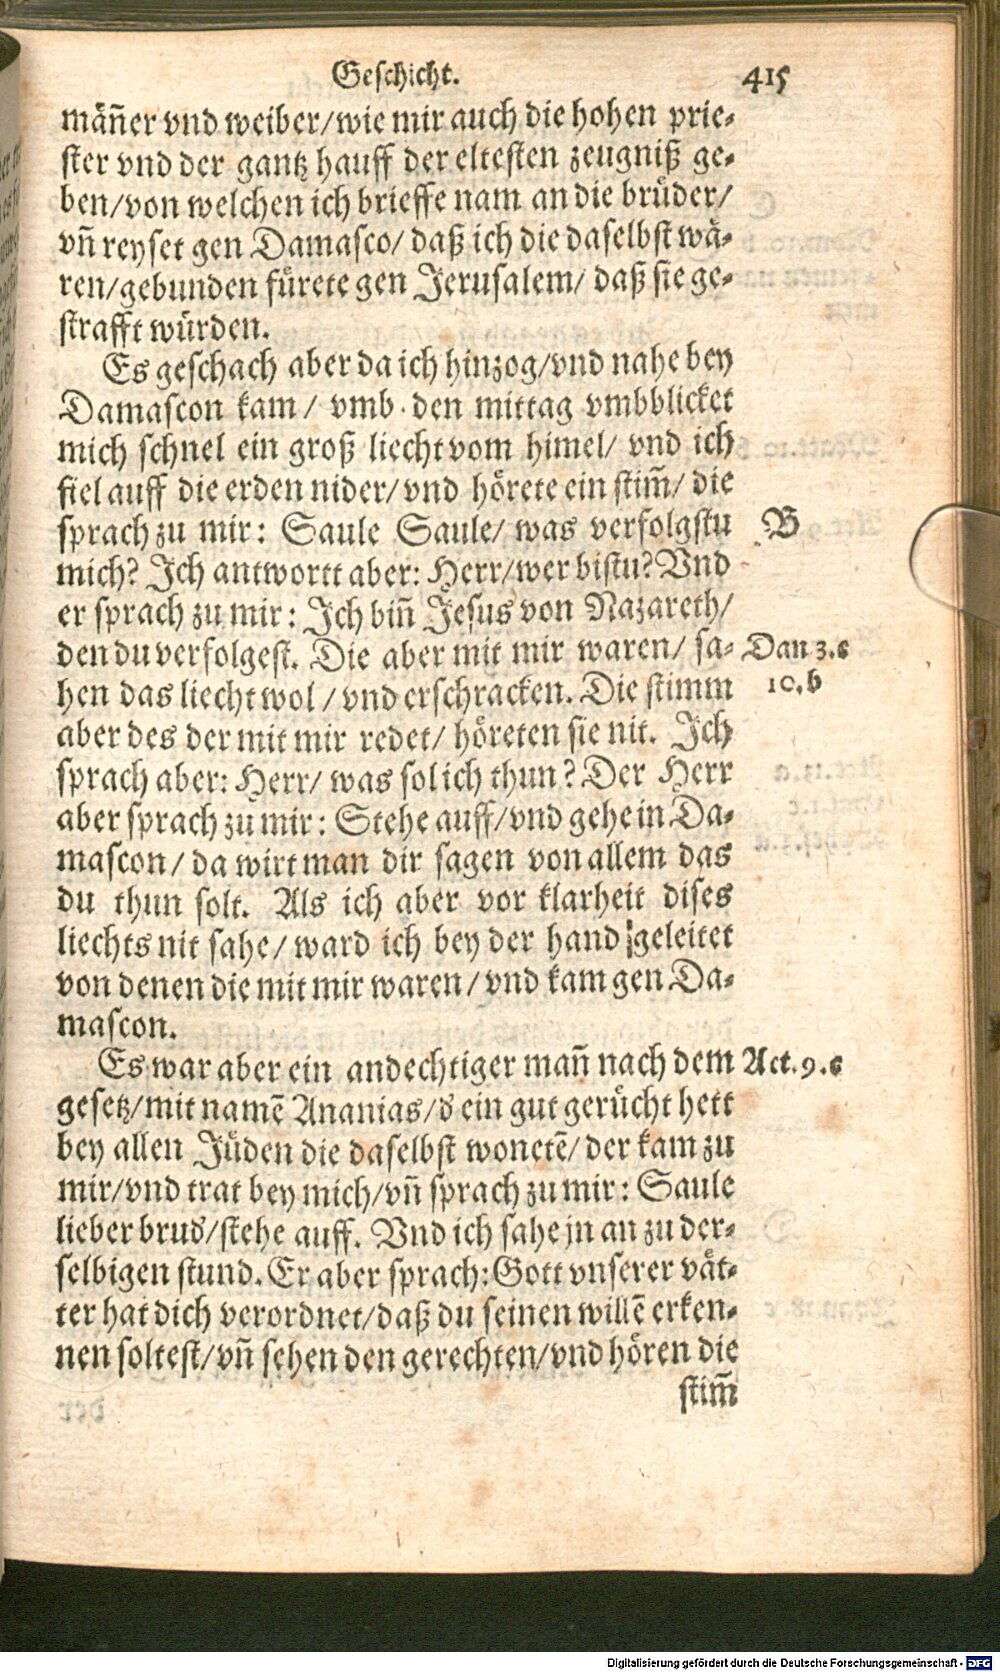 Geschicht. 415
mäñer vnd weiber/wie mir auch die hohen prie-
ster vnd der gantz hauff der eltesten zeugniß ge-
ben/von welchen ich brieffe nam an die brüder/
vñ reyset gen Damasco/ daß ich die daselbst wä-
ren/gebunden fürete gen Jerusalem/ daß sie ge-
strafft würden.
Es geschach aber da ich hinzog/vnd nahe bey
Damascon kam/ vmb den mittag vmbblicket
mich schnel ein groß liecht vom himel/ vnd ich
fiel auff die erden nider/ vnd hörete ein stim̃/ die
sprach zu mir: Saule Saule/ was verfolgstu B
mich? Ich antwortt aber: Herr/wer bistu? Vnd
er sprach zu mir: Ich biñ Jesus von Nazareth/
den du verfolgest. Die aber mit mir waren/ sa- Dan 3.c
hen das liecht wol/ vnd erschracken. Die stimm 10.b
aber des der mit mir redet/ höreten sie nit. Ich
sprach aber: Herr/ was sol ich thun? Der Herr
aber sprach zu mir: Stehe auff/vnd gehe in Da-
mascon/ da wirt man dir sagen von allem das
du thun solt. Als ich aber vor klarheit dises
liechts nit sahe/ ward ich bey der hand geleitet
von denen die mit mir waren/ vnd kam gen Da-
mascon.
Es war aber ein andechtiger mañ nach dem Act.9.c
gesetz/mit namẽ Ananias/d ein gut gerücht hett
bey allen Jüden die daselbst wonetẽ/ der kam zu
mir/vnd trat bey mich/vñ sprach zu mir: Saule
lieber brud/stehe auff. Vnd ich sahe jn an zu der-
selbigen stund. Er aber sprach: Gott vnserer vät-
ter hat dich verordnet/daß du seinen willẽ erken-
nen soltest/vñ sehen den gerechten/vnd hören die
stim̃
Digitalisierung gefördert durch die Deutsche Forschungsgemeinschaft - DFG